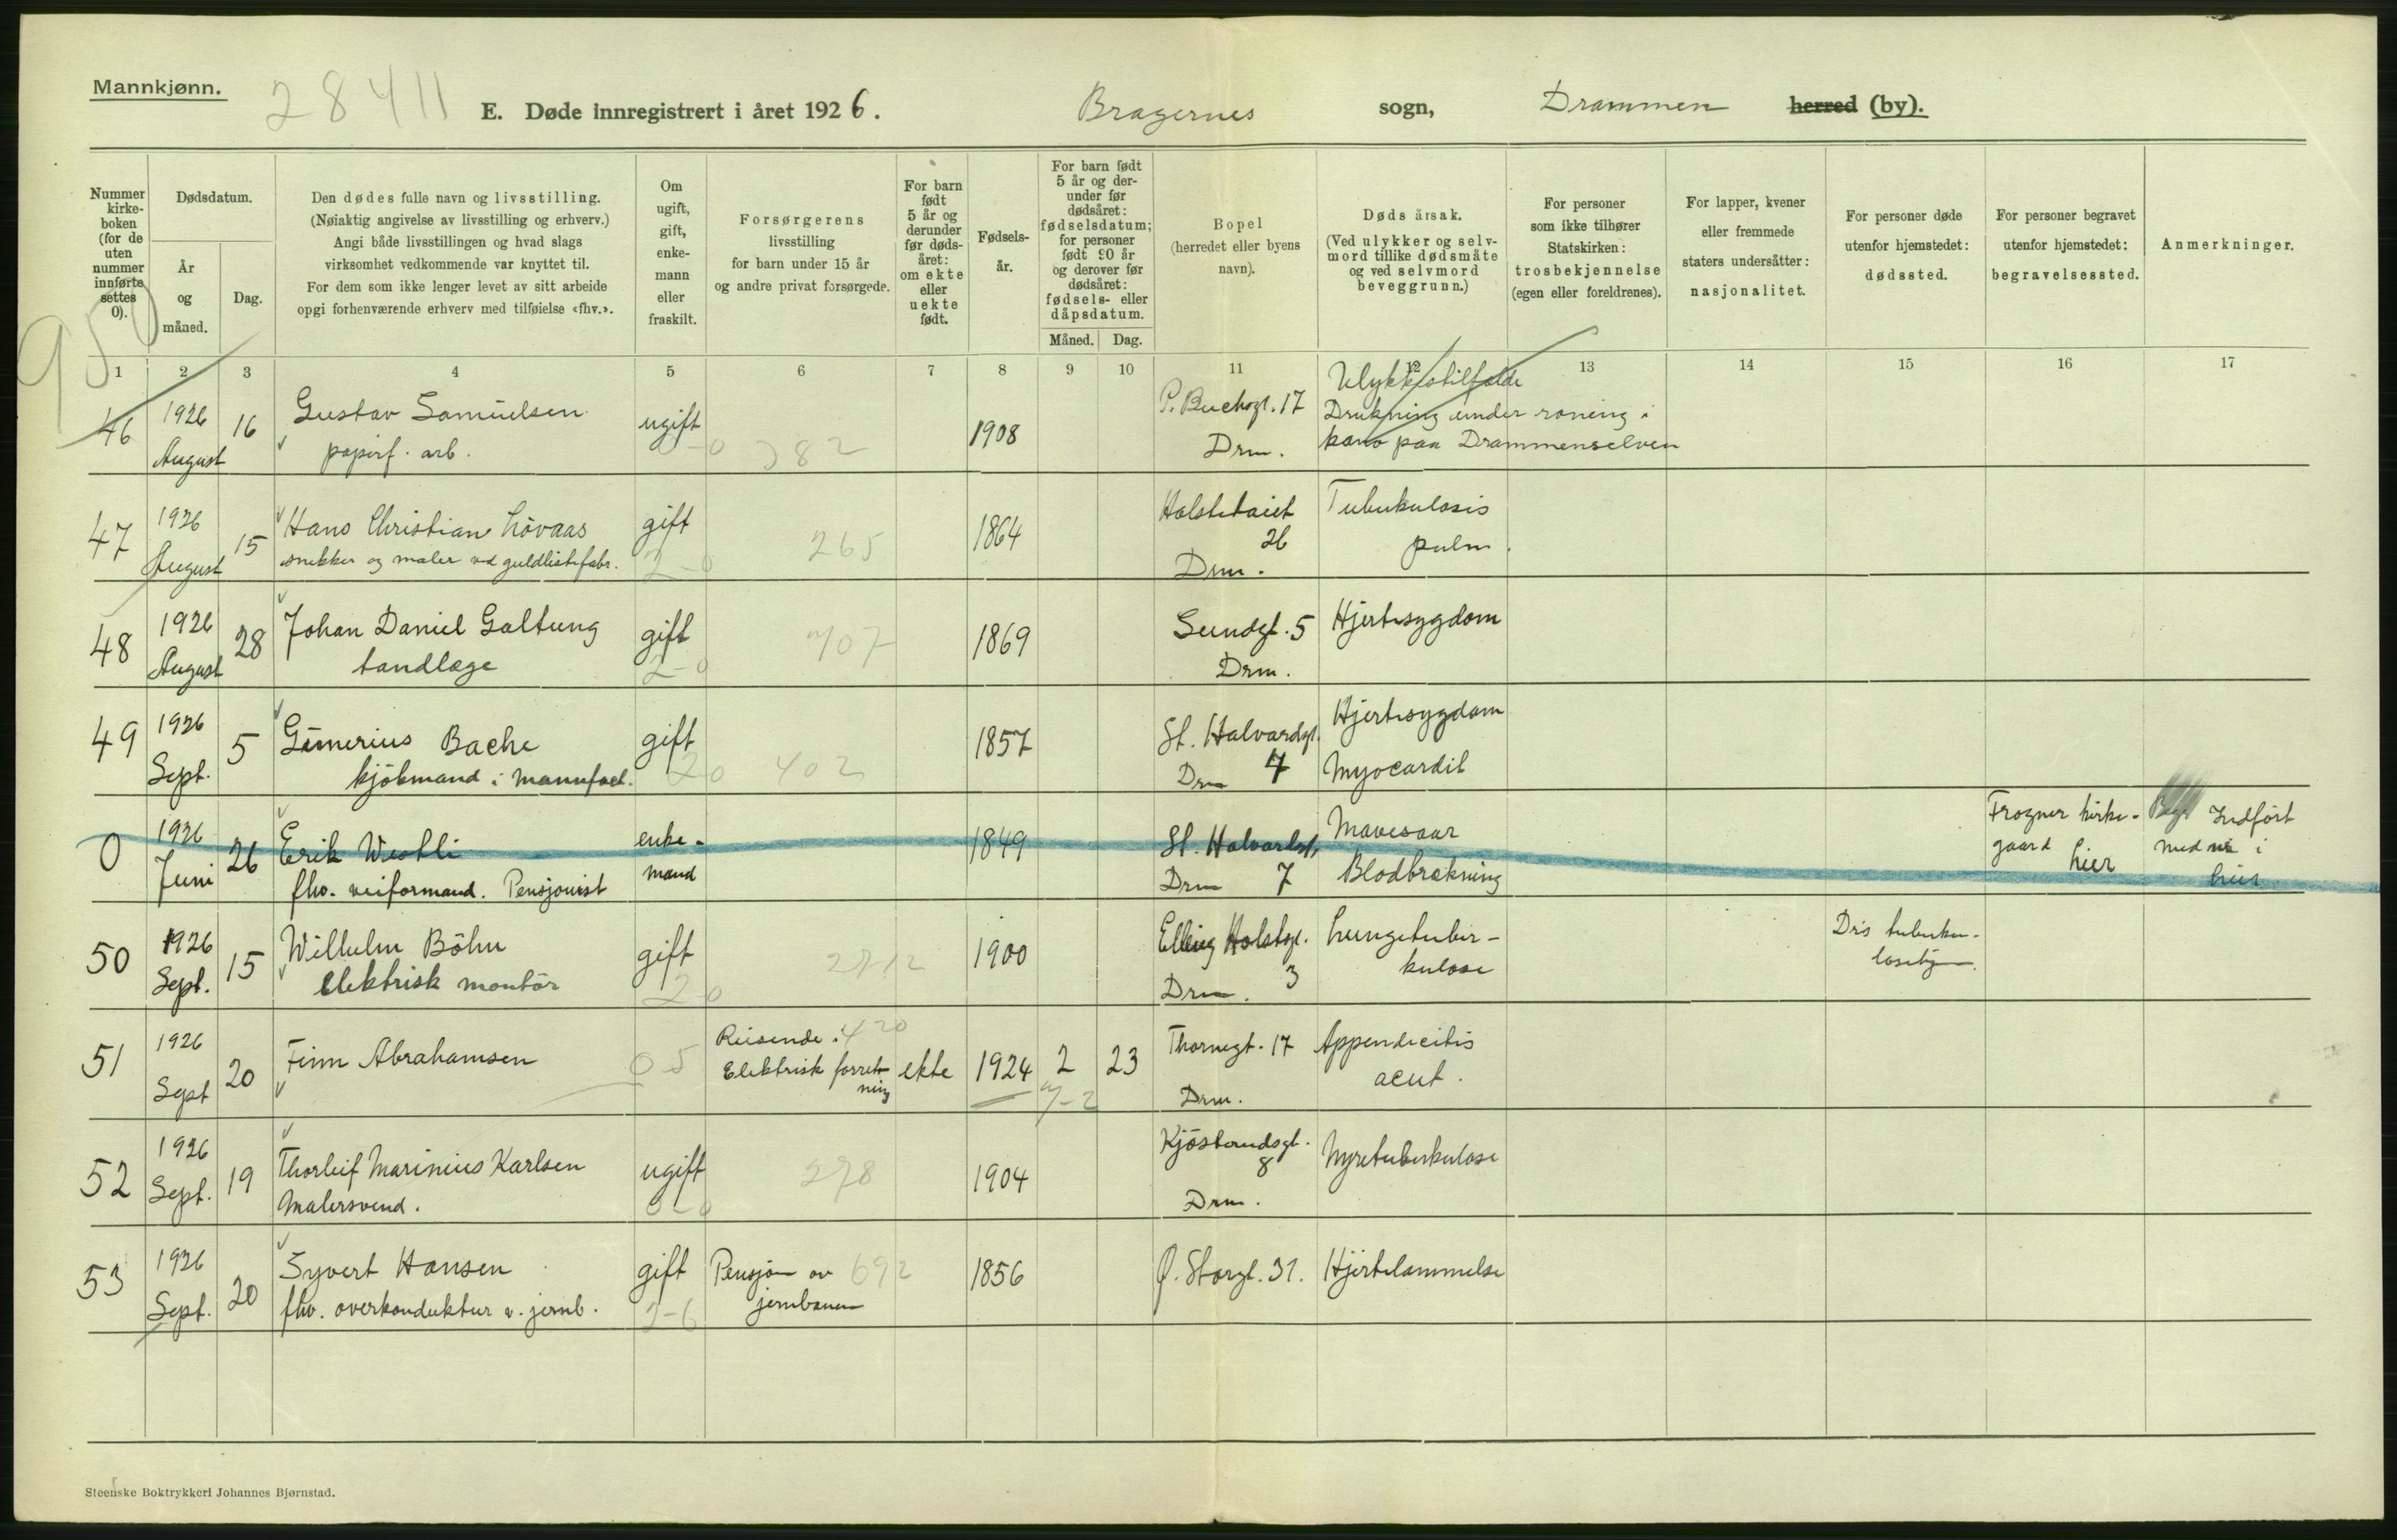 Mannkjønn.
28411
E. Døde innregistrert i året 1926.
Bragernes sogn, Drammen herred (by).
Nummer kirke-boken (for de uten nummer innførte settes 0).
Dødsdatum.
År og måned.
Dag.
Den dødes fulle navn og livsstilling.
(Nøiaktig angivelse av livsstilling og erhverv.)
Angi både livsstillingen og hvad slags
virksomhet vedkommende var knyttet til.
For dem som ikke lenger levet av sitt arbeide
opgi forhenværende erhverv med tilføielse «fhv.».
Om ugift, gift, enke-mann eller fraskilt.
Forsørgerens
livsstilling
for barn under 15 år
og andre privat forsørgede.
For barn født 5 år og derunder før døds-året: om ekte eller uekte født.
Fødsels-år.
For barn født 5 år og der-under før dødsåret: fødselsdatum; for personer født 90 år og derover før dødsåret: fødsels- eller dåpsdatum.
Måned. Dag.
Bopel
(herredet eller byens
navn).
Dødsårsak.
(Ved ulykker og selv-
mord tillike dødsmåte
og ved selvmord
beveggrunn.)
For personer
som ikke tilhører
Statskirken:
trosbekjennelse
(egen eller foreldrenes).
For lapper, kvener
eller fremmede
staters undersåtter:
nasjonalitet.
For personer døde
utenfor hjemstedet:
dødssted.
For personer begravet
utenfor hjemstedet:
begravelsessted.
Anmerkninger.
1 2 3 4 5 6 7 8 9 10 11 12 13 14 15 16 17
46 1926 August 16 Gustav Samuelsen
papirf. arb.
ugift 0-0 282 1908 P. Buchsgt. 17
Drm.
Ulykkestilfælde
Drukning under roning i
kano paa Drammenselven
47 1926 August 15 Hans Christian Lövaas
snekker og maler ved guldlistefabr.
gift 2-0 265 1864 26
Drm.
Tuberkulosis
pulm.
48 1926 August 28 Johan Daniel Galtung
tandlæge
gift 2-0 707 1869 Sundgt. 5
Drm.
Hjertesygdom
49 1926 Sept. 5 Bache
kjöbmand i manufact.
gift 20 402 1857 St. Halvardgt.
Drm 7
Hjertesygdom
Myocardit
0 1926 Juni 26 Erik Westli
fhv. veiformand. Pensjonist
enke-
mand
1849 St. Halvardgt.
Drm 7
Mavesaar
Blodbrækning
Frogner kirke-
gaard Lier
Indført
med nr i
Lier
50 1926 Sept. 15 Wilhelm Böhn
Elektrisk montör
gift 2-0 1900 Elling Holstsgt.
3
Drm.
Lungetuber-
kulose
Drs tuberku-
51 1926 Sept 20 Finn Abrahamsen
05 Reisende i 420
Elektrisk forret-
ning
ekte 1924 2 23 Thornegt. 17
Drm.
Appendicitis
acut.
52 1926 Sept. 19 Thorleif Marinius Karlsen
Malersvend.
ugift 0-0 278 1904 Kjösterudsgt.
8
Drm.
Nyretuberkulose
53 1926 Sept. 20 Syvert Hansen
fhv. overkonduktur v. jernb.
gift 2-6 Pensjon av 692
jernbanen
1856 Ø. Storgt. 31. Hjertelammelse
Steenske Boktrykkeri Johannes Bjørnstad.